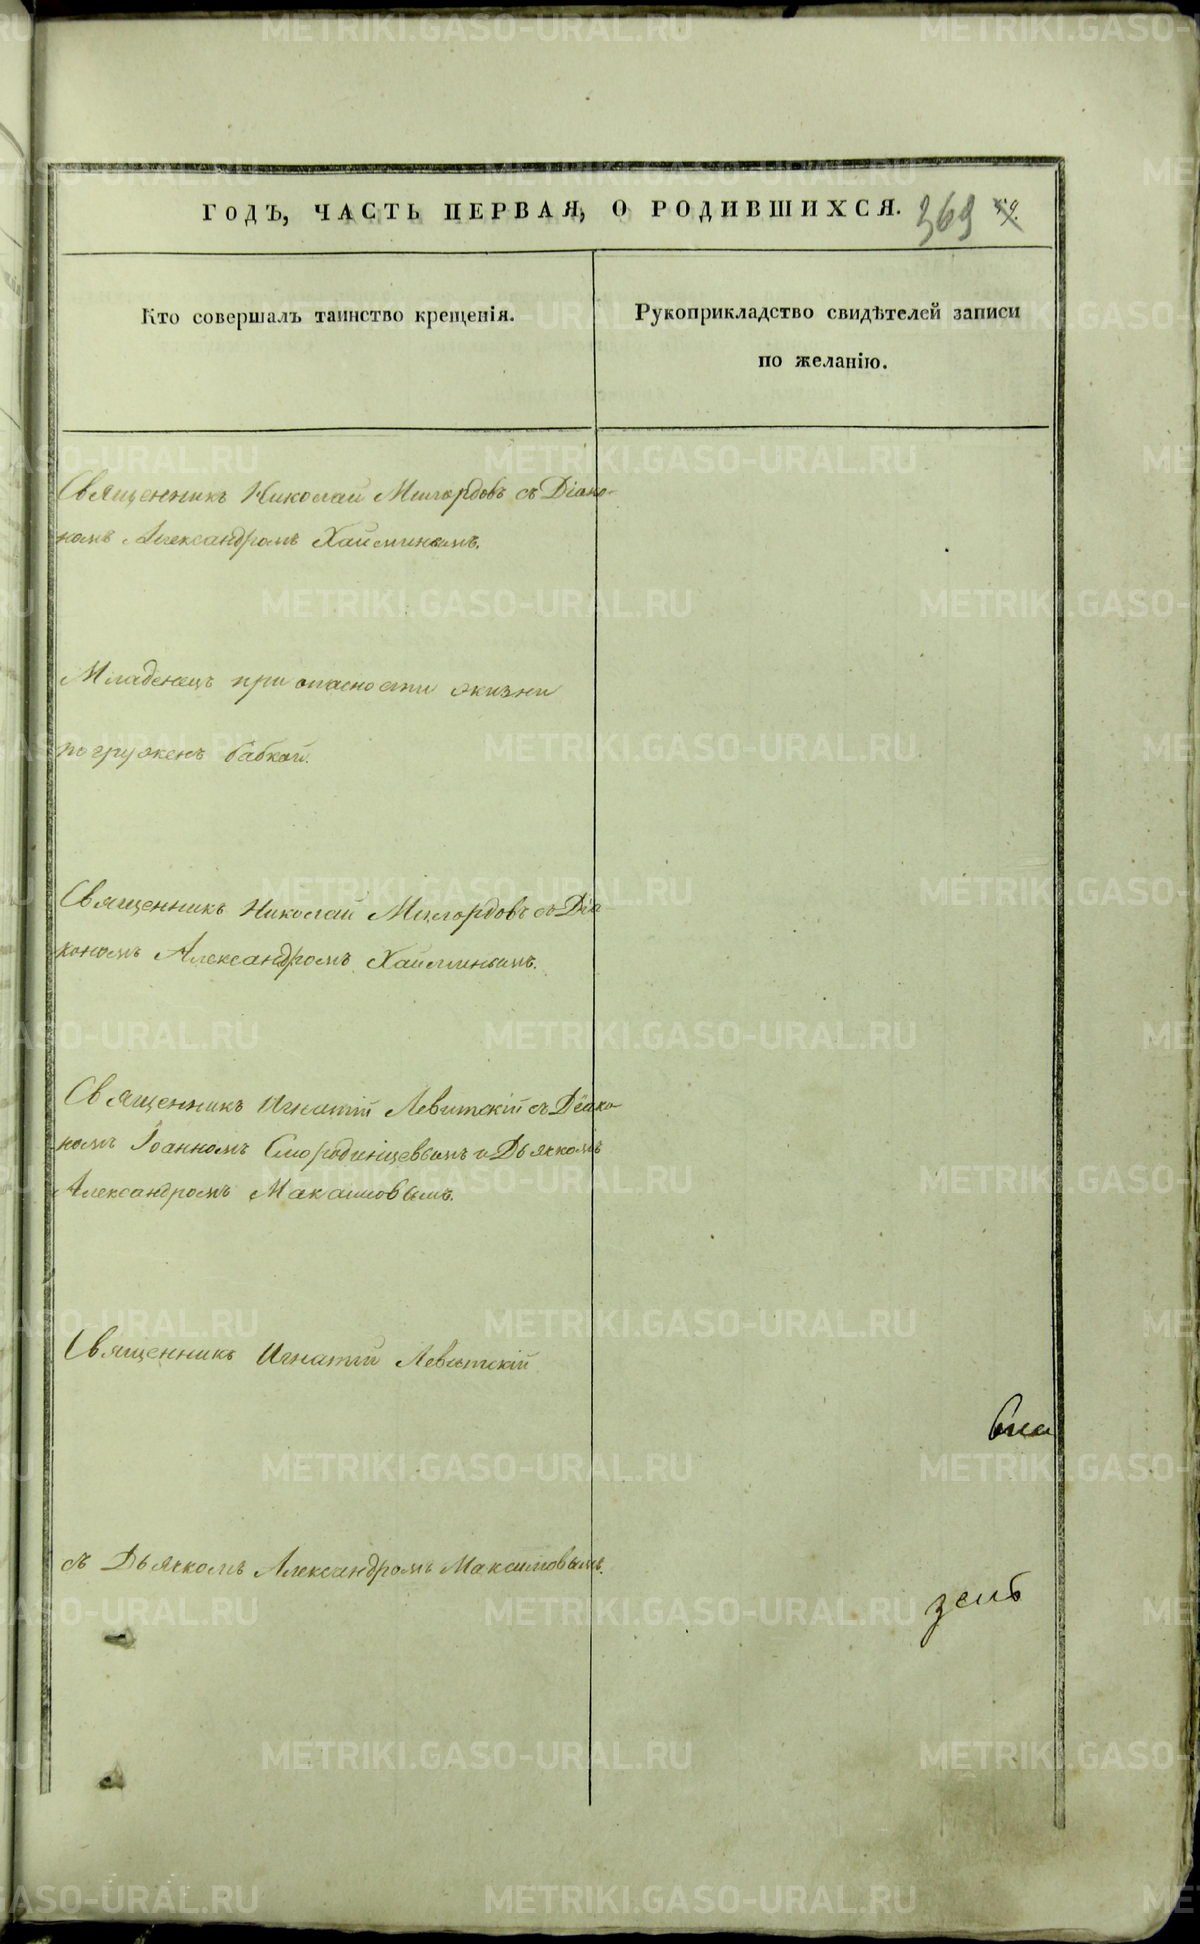 ГОДЪ, ЧАСТЬ ПЕРВАЯ, О РОДИВШИХСЯ. 369
Кто совершалъ таинство крещенія.
Рукоприкладство свидѣтелей записи
по желанію.
Священникъ Николай Милордовъ съ Діако-
номъ Александромъ Хайминымъ.
Младенецъ при опасности жизни
погруженъ бабкой.
Священникъ Николай Милордовъ съ Діа
кономъ Александромъ Хайминымъ.
Священникъ Игнатій Левитскій съ Діако
номъ Іоанномъ Смородинцевымъ и Дьячкомъ
Александромъ Макашовымъ.
Священникъ Игнатій Левитскій
съ Дьячкомъ Александромъ Максимовымъ.
METRIKI.GASO-URAL.RU